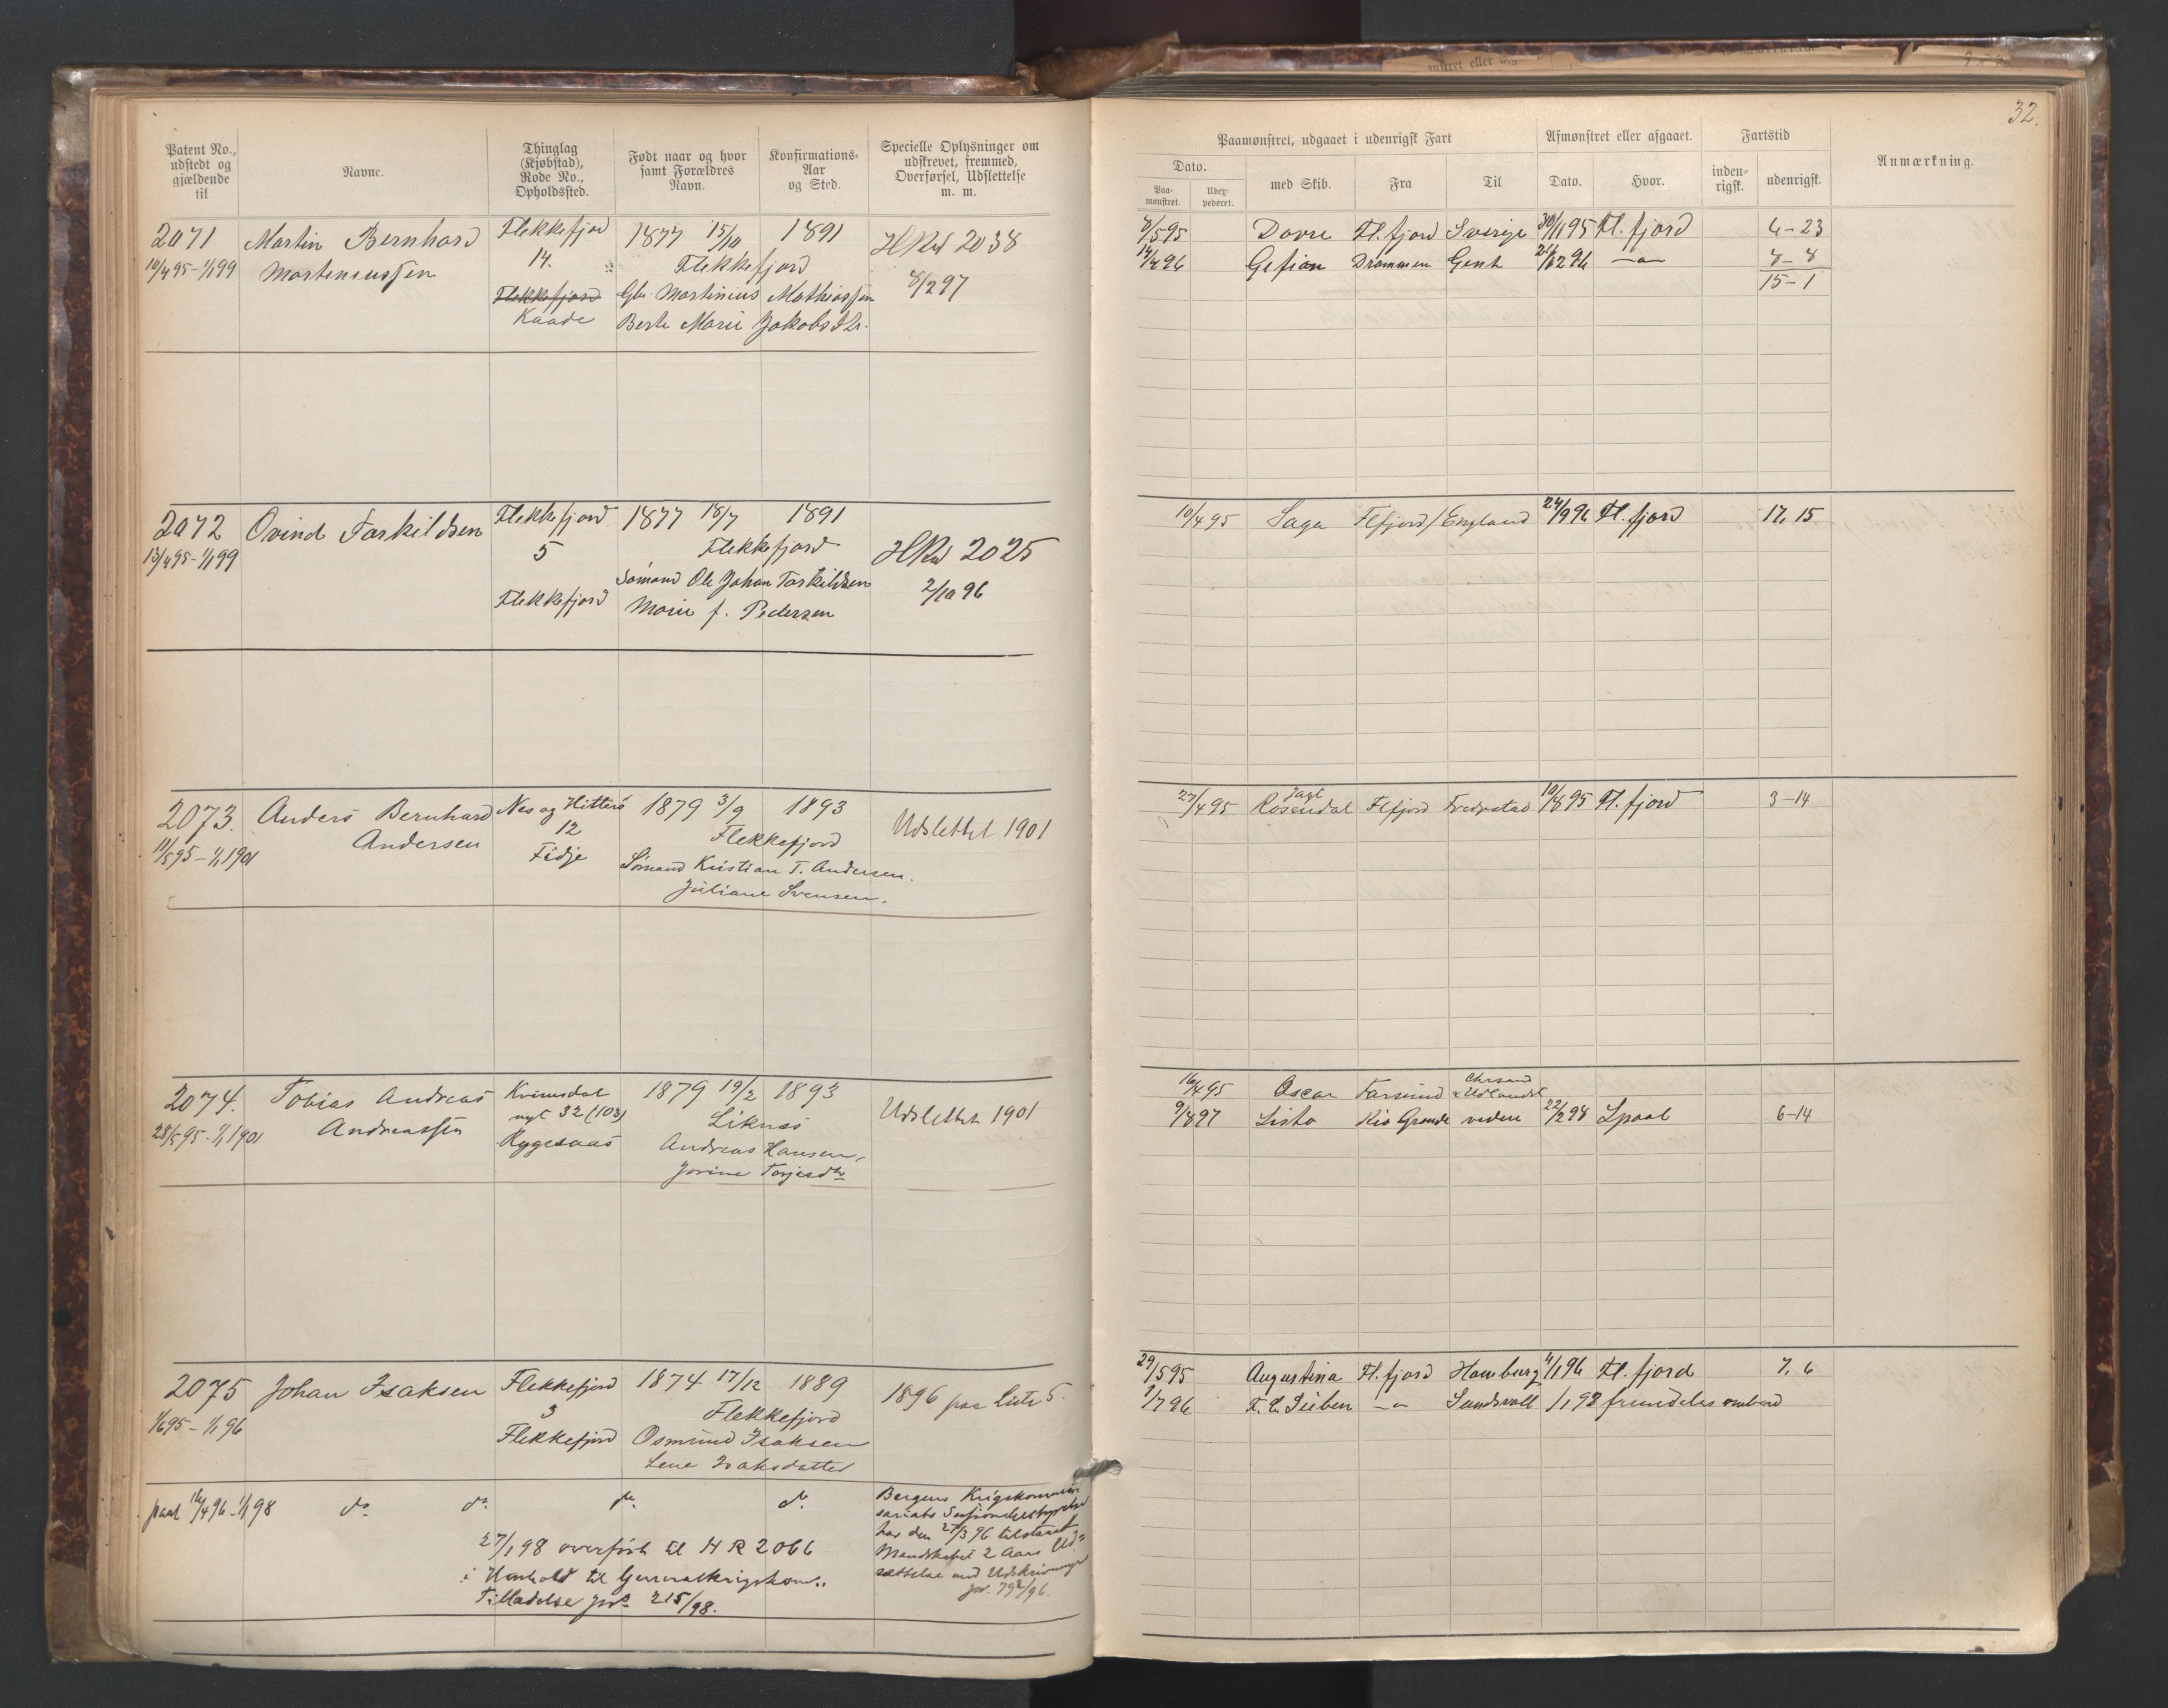 32.
Patent No., udstedt og gjældende til
Navne.
Thinglag (Kjøbstad), Rode No., Opholdssted.
Født naar og hvor samt Forældres Navn.
Konfirmations-Aar og Sted.
Specielle Oplysninger om udskrevet, fremmed, Overførsel, Udslettelse m. m.
Paamønstret, udgaaet i udenrigsk Fart
Afmønstret eller afgaaet.
Fartstid
Anmærkning.
Dato.
Paa-mønstret.
Uder-pederet.
med Skib.
Fra
Til
Dato.
Hvor.
inden-rigsk.
udenrigsk.
2071 Martin Bernhard Flekkefjord 1877 15/10 1891 HRul 2038
10/4 95 - 1/1 99 Martiniussen 14. Flekkefjord 8/2 97
Flekkefjord Gbr. Martinius Mathiassen
Kaade Berte Marie Jakobsdtr.
8/5 95 Dovre Fl.fjord Sverige 30/1 95 Fl.fjord 6-23
14/4 96 Gefion Drammen Genh 296 -"- 8-8
15-1
2072 Ovind Tarkildsen Flekkefjord 1877 18/7 1891
13/4 95 - 1/1 99 5 Flekkefjord HRul 2025
Sømand Ole Johan Tarkildsen 2/10 96
Flekkefjord Marie f. Pedersen
10/4 95 Saga Flfjord England 24/9 96 Fl.fjord 17, 15
2073. Anders Bernhard Nes og Hitterø 1879 3/9 1893 Udslettet 1901
11/5 95 - 1/1 1901 Andersen 12 Flekkefjord
Fidje Sømand Kristian T. Andersen.
Juliane Svensen.
27/4 95 Jagt Rosendal Flfjord Fredrstad 10/8 95 Fl.fjord 3-14
2074. Tobias Andreas Kvinesdal 1879 19/2 1893 Udslettet 1901
28/5 95 - 1/1 1901 Andreassen nyt 32 (103) Liknes
Rygesaas Andreas Hansen,
Jorine Torjesdtr
16/4 95 Oscar Farsund Chrsand & Udlandet
9/8 97 Lista Rio Grande videre 22/2 98 Lpool 6-14
2075 Johan Isaksen Flekkefjord 1874 17/12 1889 1896 paa liste 5.
1/6 95 - 1/1 96 3 Flekkefjord
Flekkefjord Osmund Isaksen
Lene Isaksdatter
29/5 95 Augustina Fl.fjord Hamburg 4/1 96 Fl.fjord 7, 6
1/7 96 -"- Sundsvall 1/1 98 fremdeles ombord
paal 16/4 96 - 1/1 98 do do do do
Bergens Krigskommis
sariats Sesjonsbestyrelse
har den 27/3 96 tilstaaet
Mandskabet 2 Aars Ud=
sættelse med Udskrivning
jor. 792/96.
27/1 98 overført til HR 2066
i Henhold til Generalkrigskom..
Tilladelse jor. 215/98.